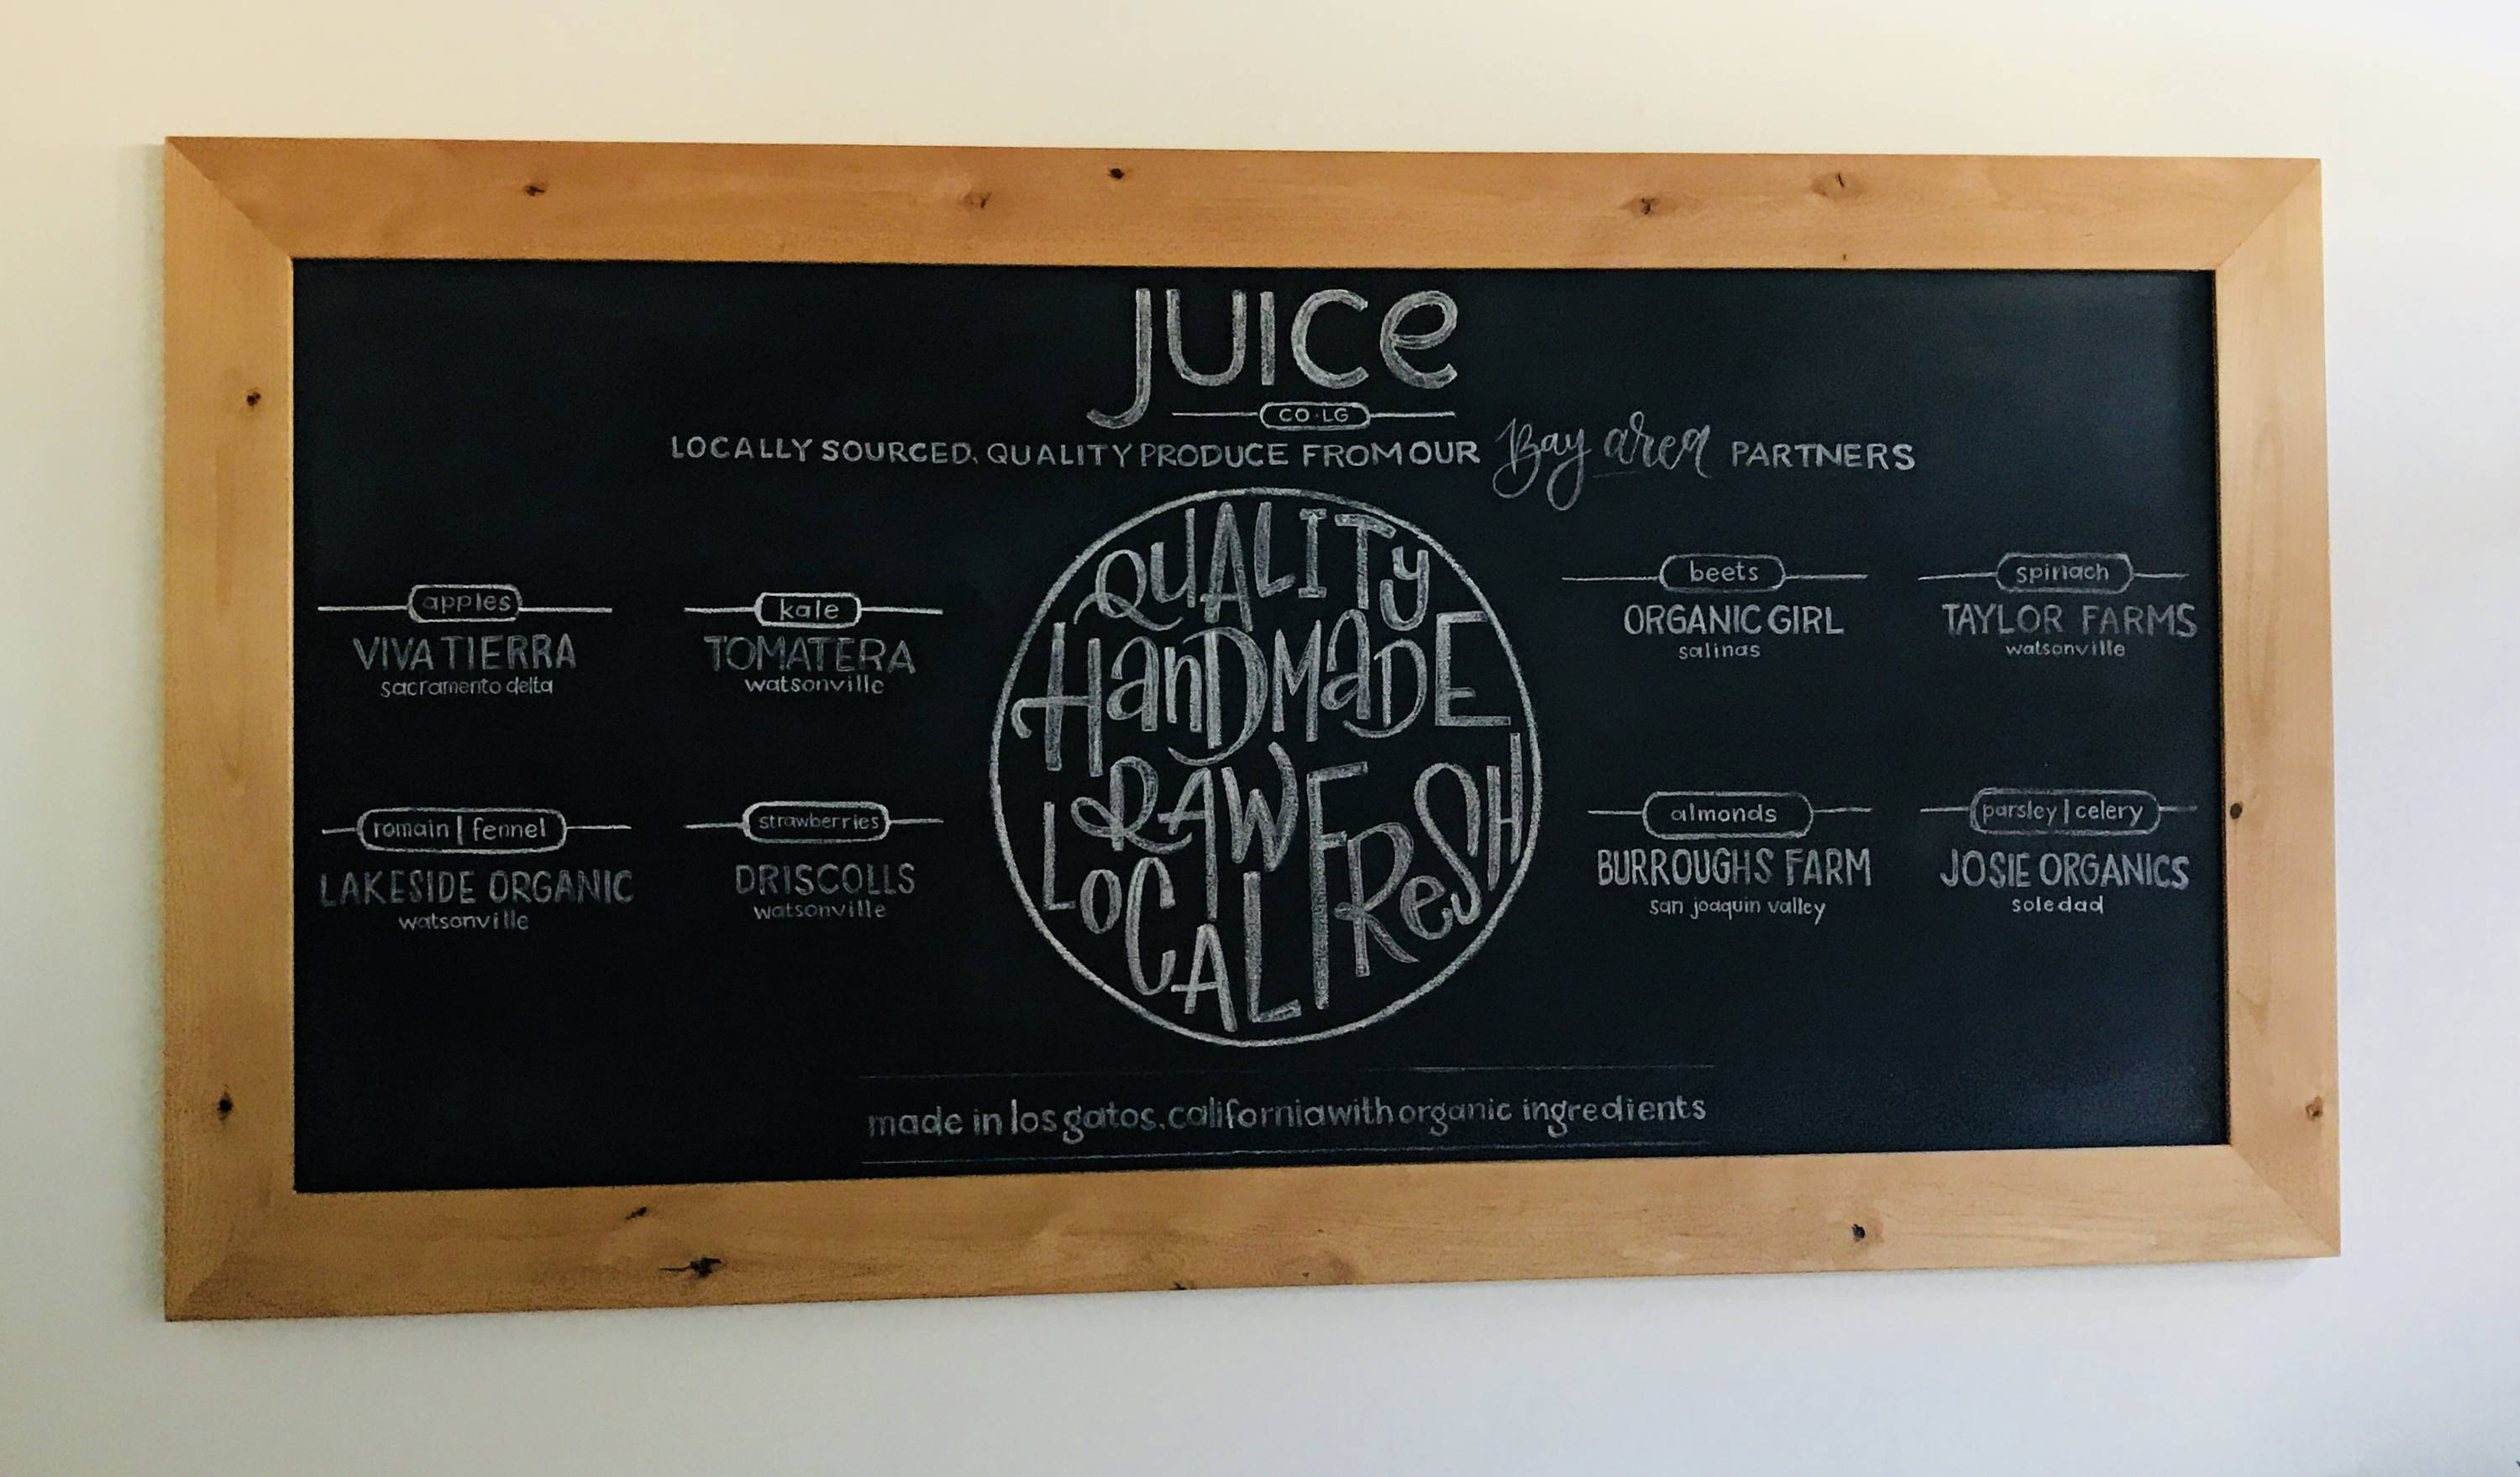 JUICE
CO·LG
LOCALLY SOURCED, QUALITY PRODUCE FROM OUR Bay area PARTNERS
apples
VIVA TIERRA
sacramento delta
kale
TOMATERA
watsonville
romain | fennel
LAKESIDE ORGANIC
watsonville
strawberries
DRISCOLLS
watsonville
QUALITY
HANDMADE
RAW FRESH
LOCAL
beets
ORGANIC GIRL
salinas
spinach
TAYLOR FARMS
watsonville
almonds
BURROUGHS FARM
san joaquin valley
parsley | celery
JOSIE ORGANICS
soledad
made in los gatos, california with organic ingredients